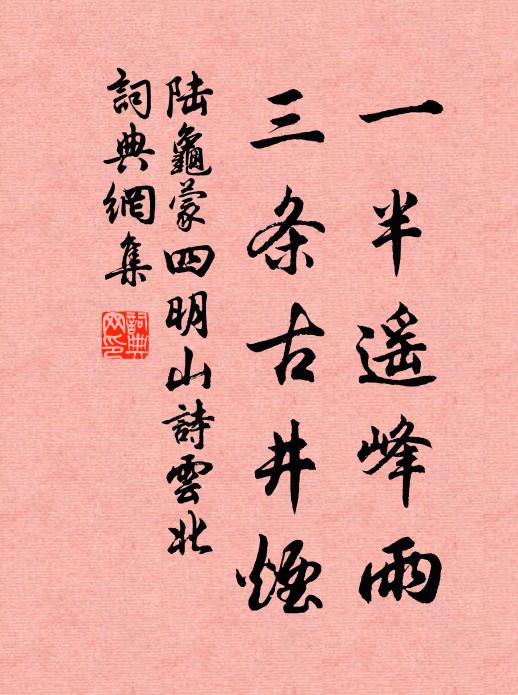 一半遥峰雨
三条古井煙
陆龜蒙四明山詩雲北
詞典網集
詞典網印